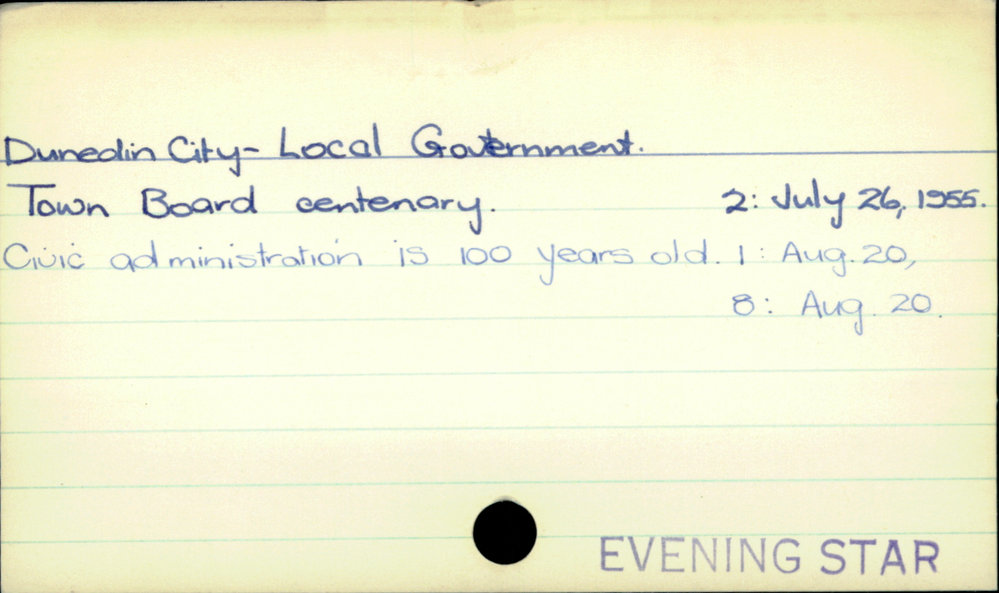 Dunedin City - Local Government.
Town Board centenary. 2: July 26, 1955.
Civic administration is 100 years old. 1: Aug. 20,
8: Aug. 20.
EVENING STAR